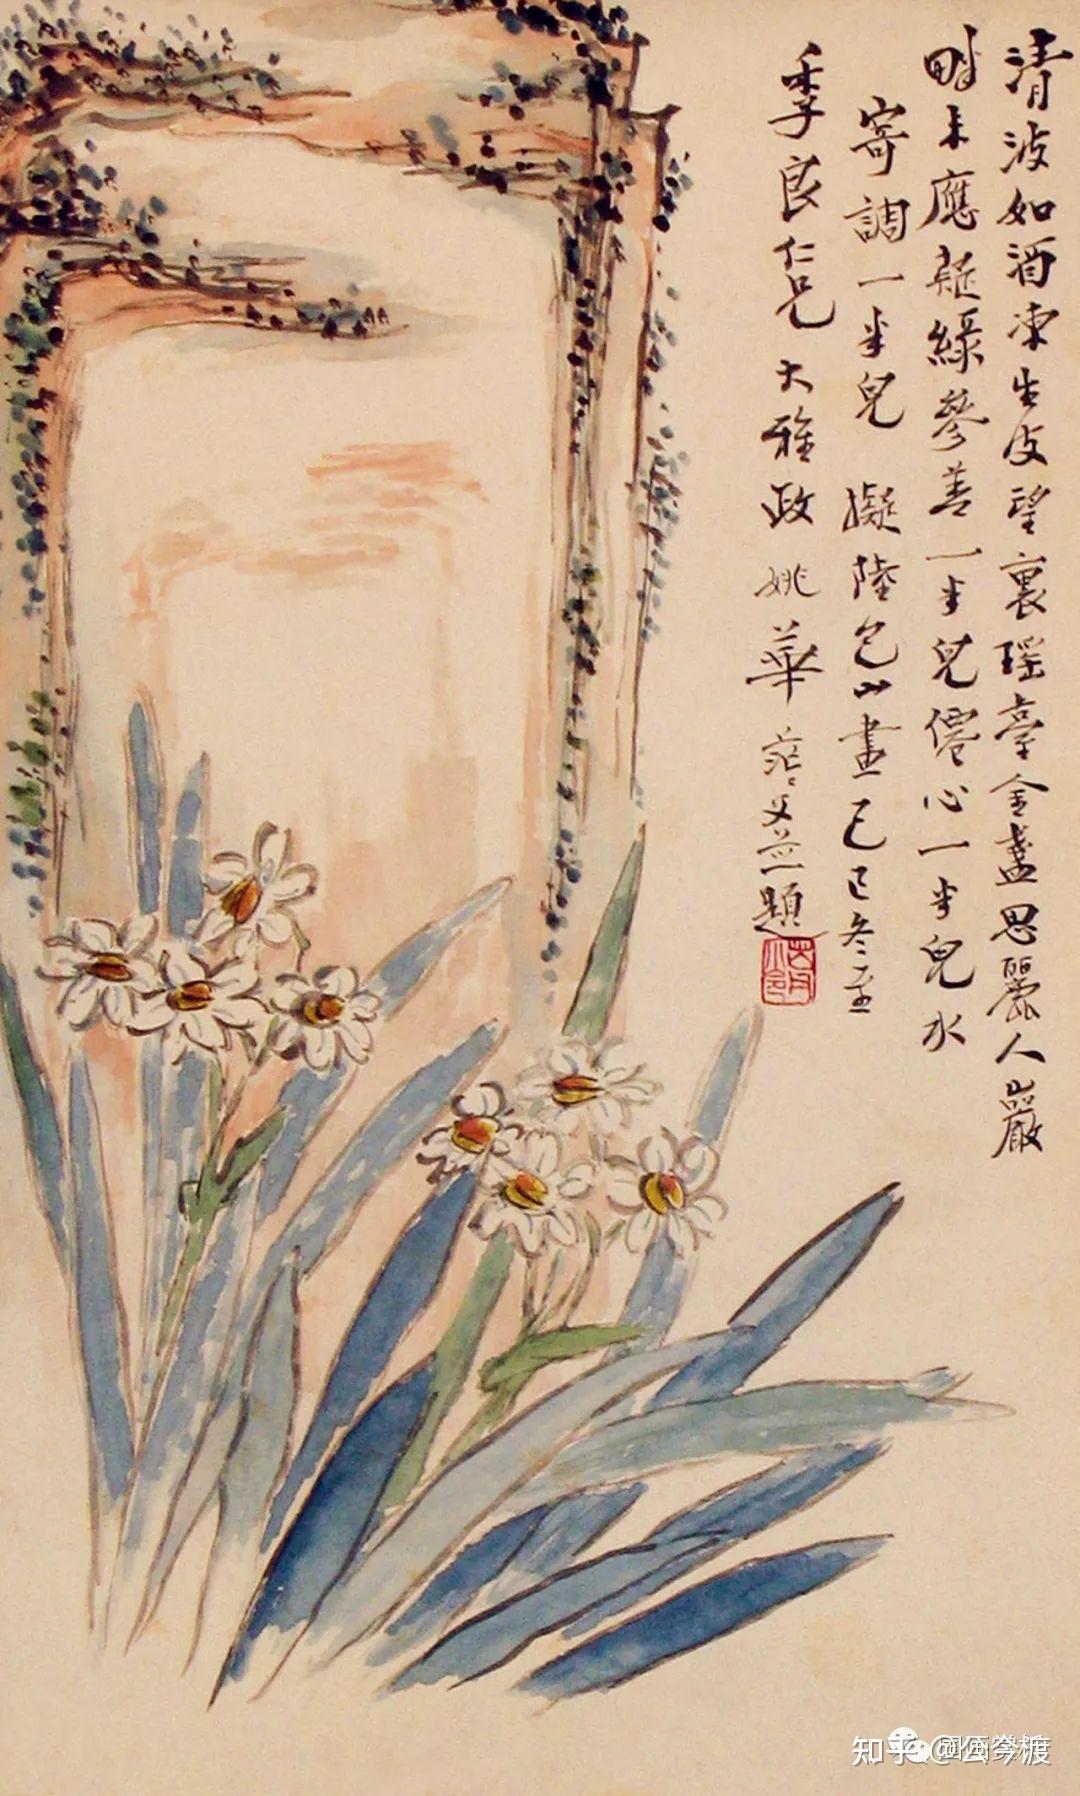 清波如酒凍生皮望裏瑤臺金盞思麗人巖
畔未應疑綠參差一半兒僊心一半兒水
寄調一半兒 擬陸包山畫己巳冬至
季良仁兄大雅政 姚華茫父並題
知乎